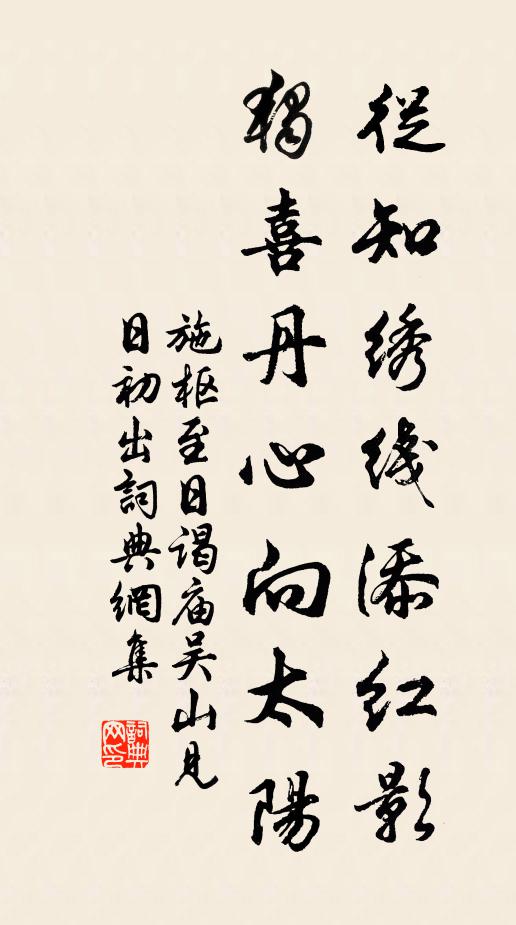 從知绣綫添红影
獨喜丹心向太陽
施枢至日谒庙吴山見
日初出詞典網集
詞典网印